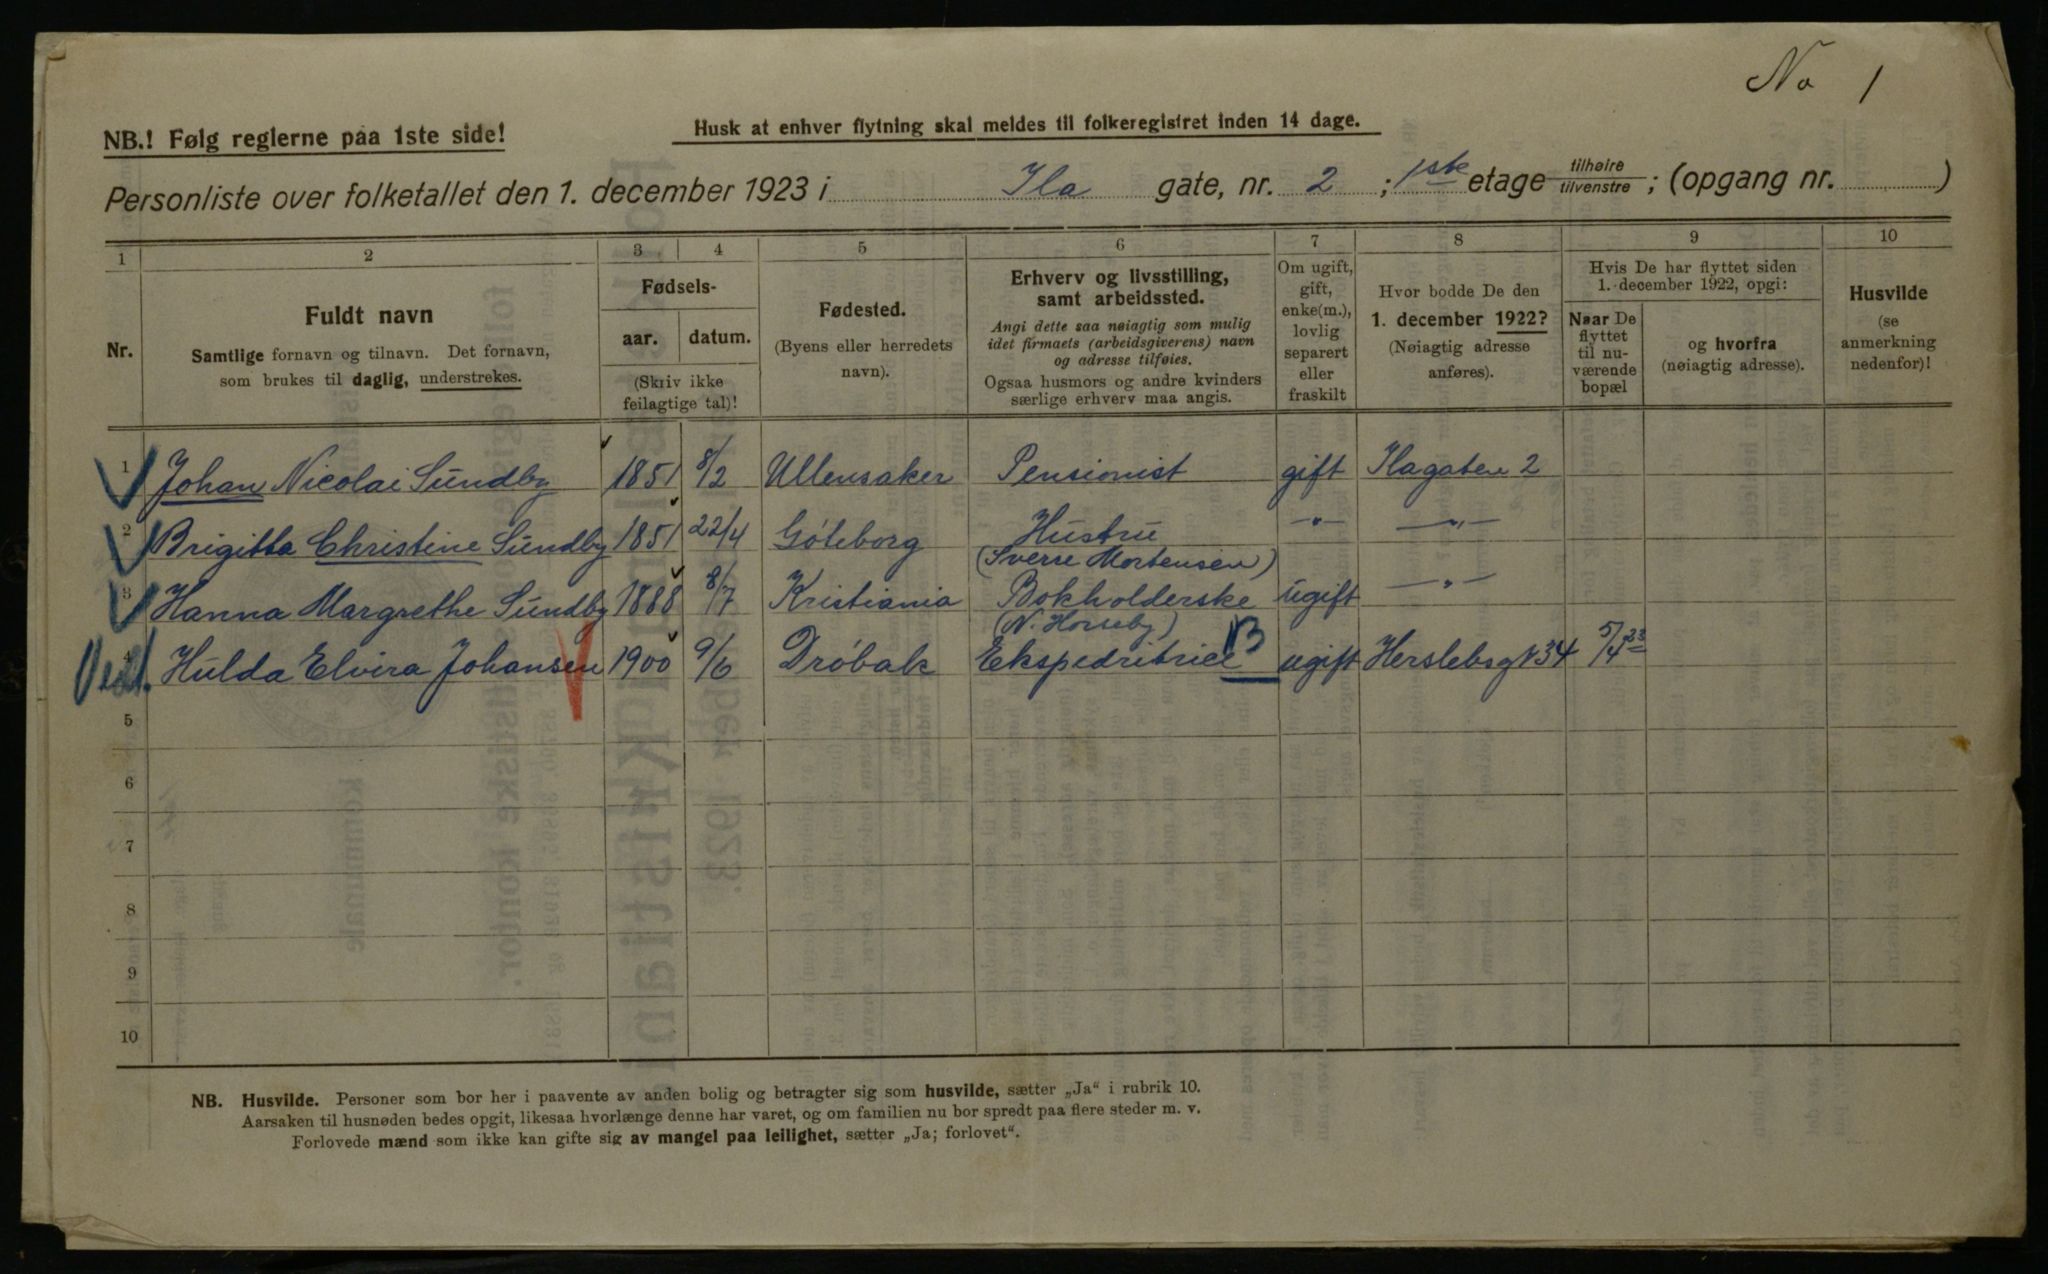 No 1
NB.! Følg reglerne paa 1ste side!
Husk at enhver flytning skal meldes til folkeregistret inden 14 dage.
Personliste over folketallet den 1. december 1923 i Ila gate, nr. 2 ; 1ste etage tilhøire tilvenstre ; (opgang nr. )
1 2 3 4 5 6 7 8 9 10
Nr.
Fuldt navn
Samtlige fornavn og tilnavn. Det fornavn,
som brukes til daglig, understrekes.
Fødsels-
aar. datum.
(Skriv ikke
feilagtige tal)!
Fødested.
(Byens eller herredets
navn).
Erhverv og livsstilling,
samt arbeidssted.
Angi dette saa nøiagtig som mulig
idet firmaets (arbeidsgiverens) navn
og adresse tilføies.
Ogsaa husmors og andre kvinders
særlige erhverv maa angis.
Om ugift,
gift,
enke(m.),
lovlig
separert
eller
fraskilt
Hvor bodde De den
1. december 1922?
(Nøiagtig adresse
anføres).
Hvis De har flyttet siden
1. december 1922, opgi:
Naar De
flyttet
til nu-
værende
bopæl
og hvorfra
(nøiagtig adresse).
Husvilde
(se
anmerkning
nedenfor)!
1 Johan Nicolai Sundby 1851 8/2 Ullensaker Pensionist gift Ilagaten 2
2 Brigitta Christine Sundby 1851 22/4 Göteborg Hustru -"- -"-
(Sverre Mortensen)
3 Hanna Margrethe Sundby 1888 8/7 Kristiania Bokholderske ugift -"-
(N. Horseby)
4 Hulda Elvira Johansen 1900 9/6 Dröbak Ekspedritrice B ugift Herslebsgt 34 5/4 23
5
6
7
8
9
10
NB. Husvilde. Personer som bor her i paavente av anden bolig og betragter sig som husvilde, sætter „Ja“ i rubrik 10.
Aarsaken til husnøden bedes opgit, likesaa hvorlænge denne har varet, og om familien nu bor spredt paa flere steder m. v.
Forlovede mænd som ikke kan gifte sig av mangel paa leilighet, sætter „Ja; forlovet“.